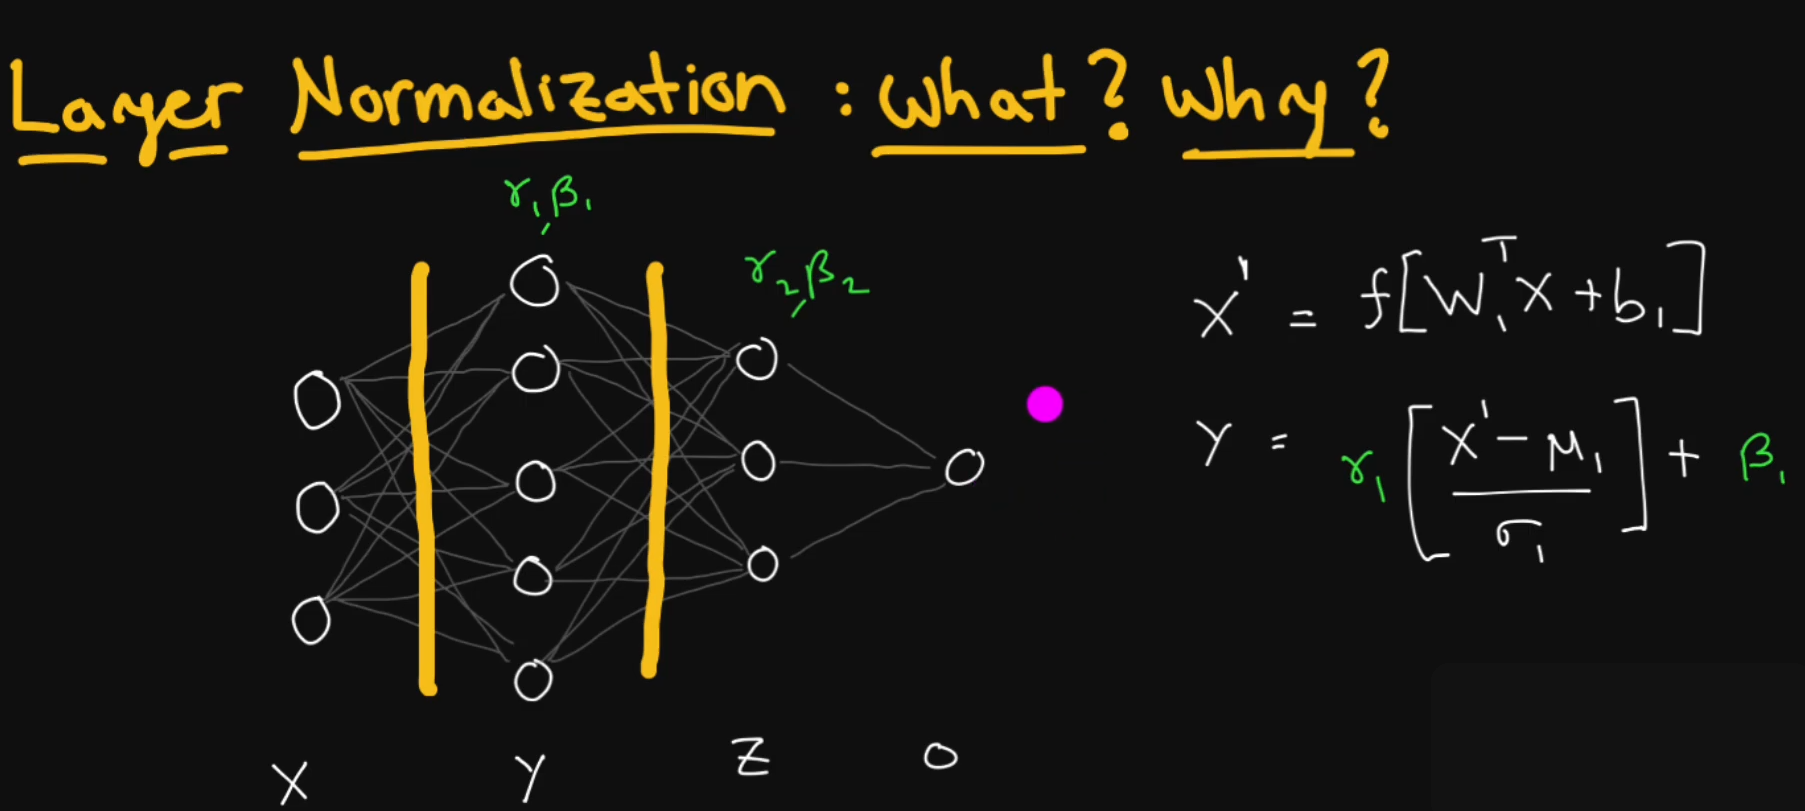 Layer Normalization : What? Why?
γ₁, β₁
γ₂, β₂
X' = f[W₁ᵀX + b₁]
Y = γ₁ [X' - μ₁ / σ₁] + β₁
X Y Z O